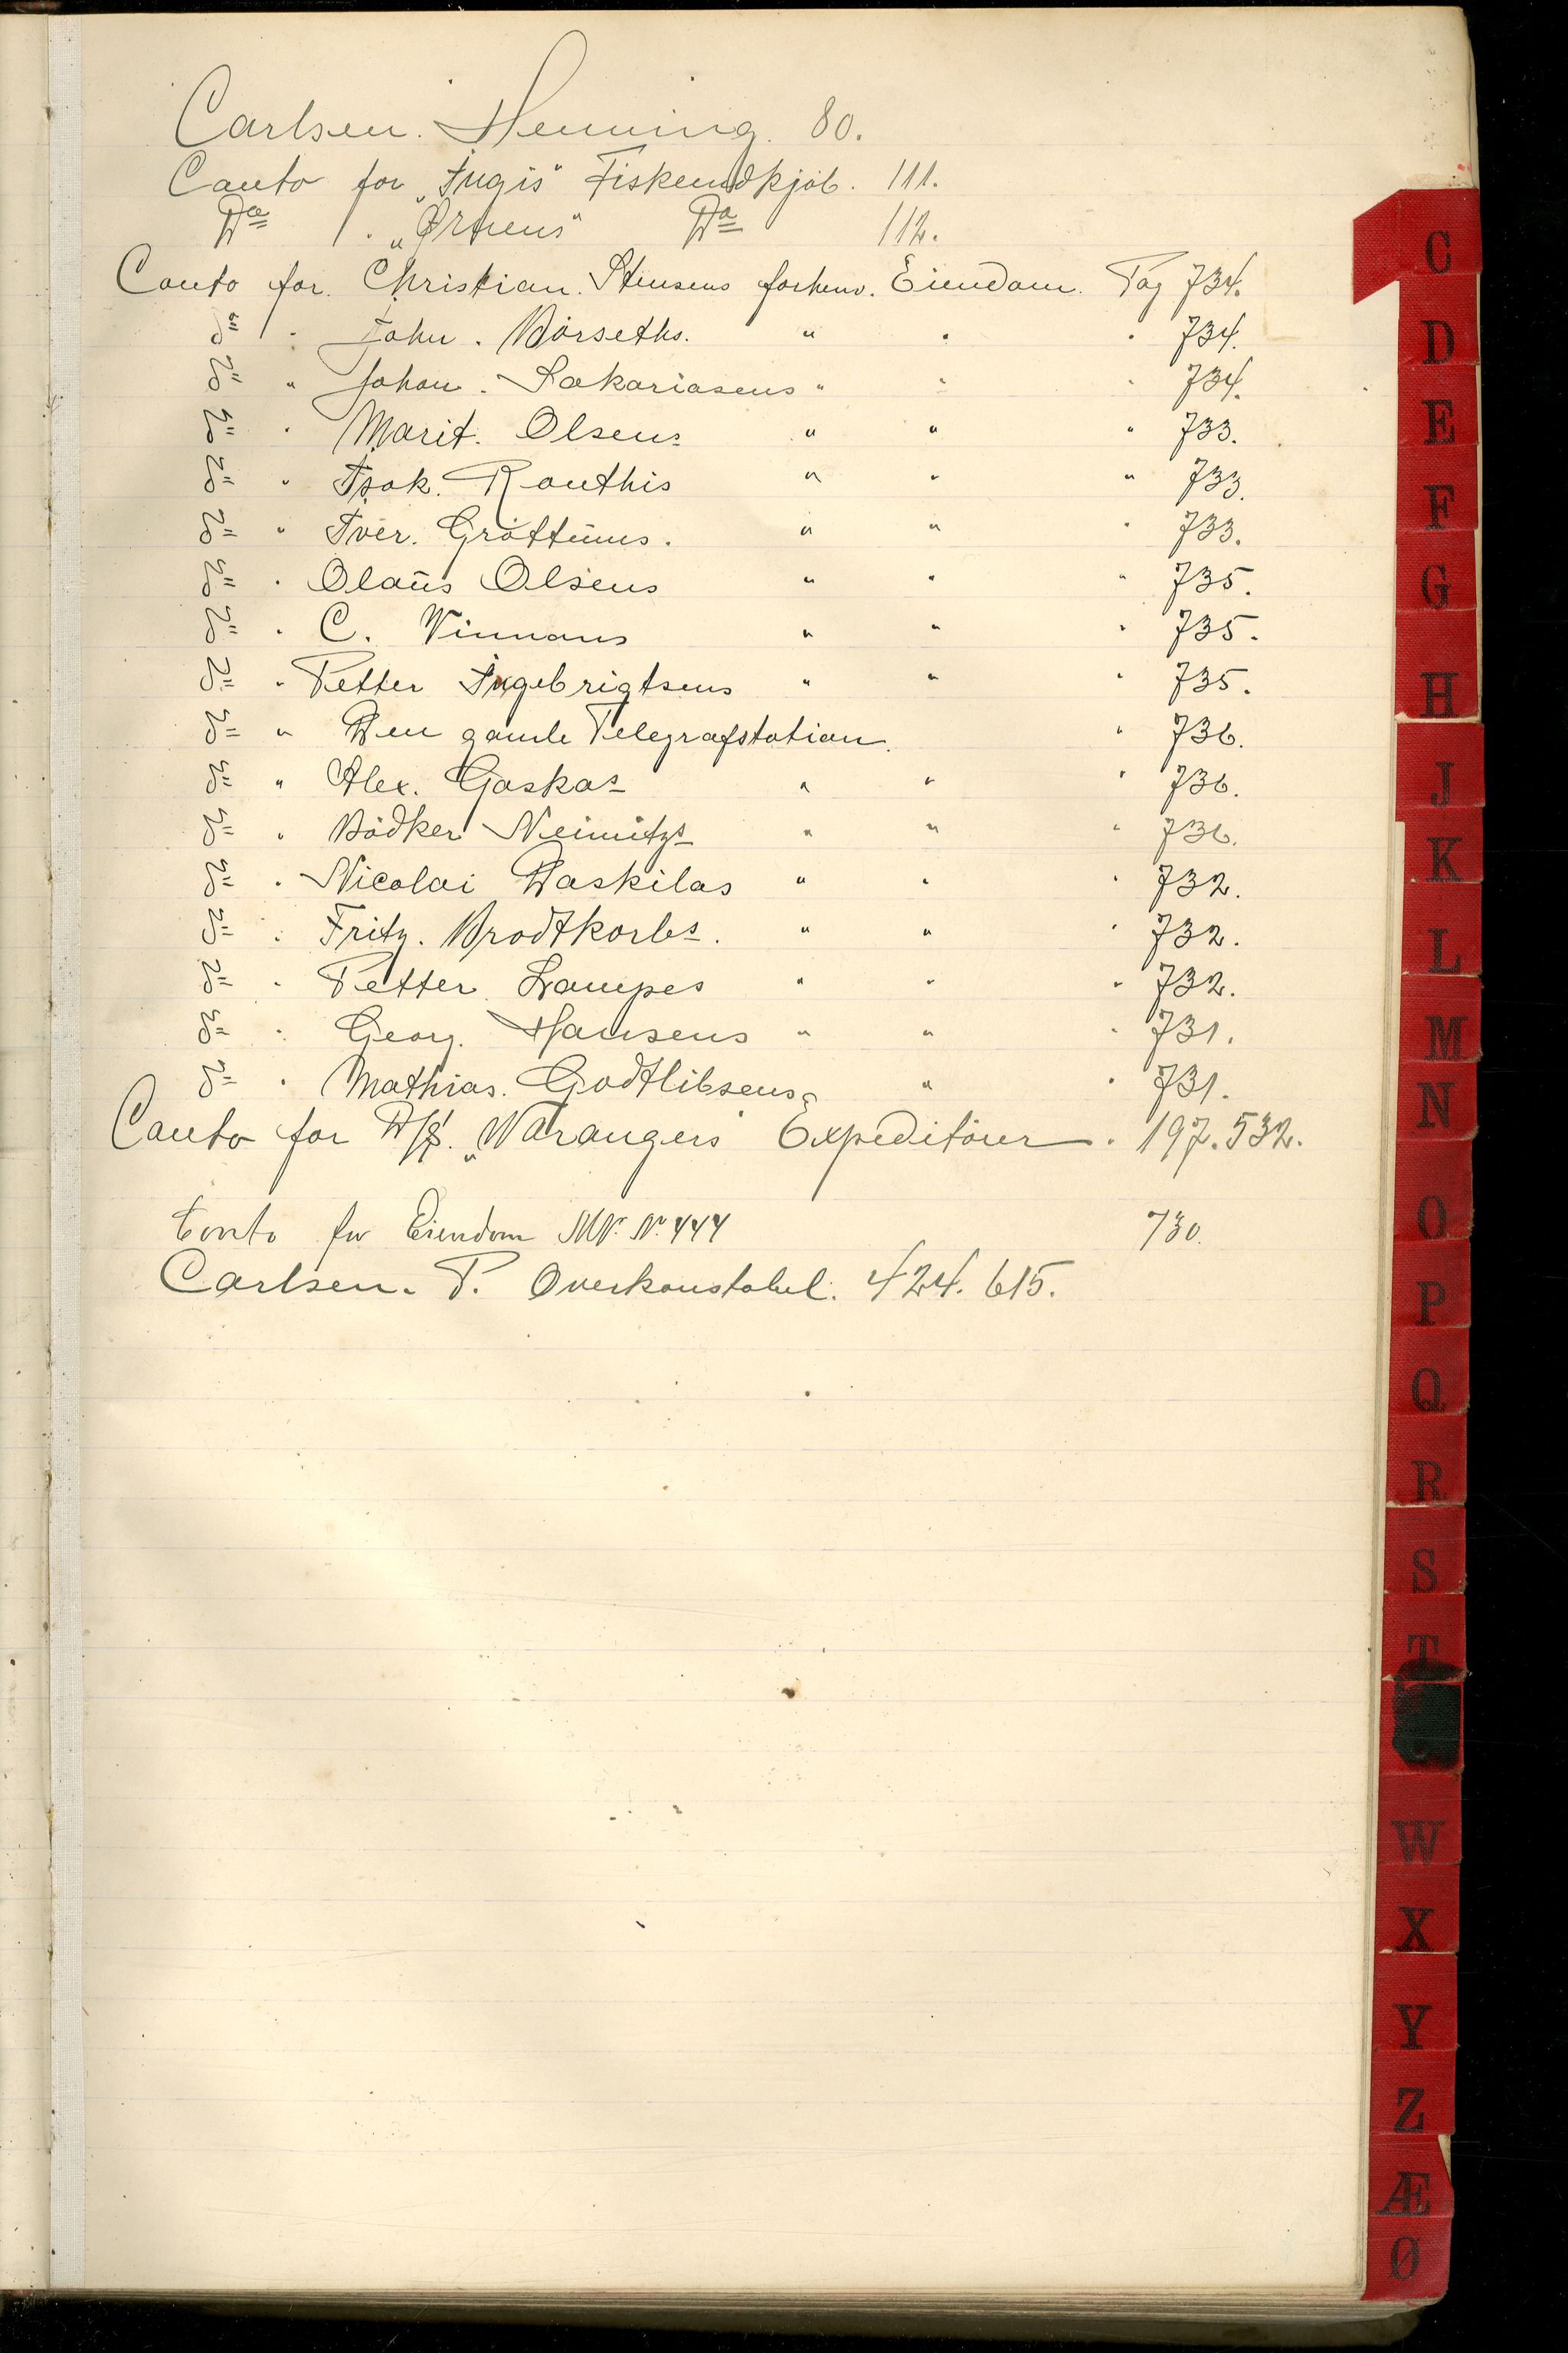 Carlsen. Henning. 80.
Conto for "Ingis" Fiskeindkjøb. 111.
Do " "Ørnens" Do 112.
Conto for Christian Stensens forhenv. Eiendom. Pag 734.
do " John. Børseths. " " " 734.
do " Johan. Sakariasens " " " 734.
do " Marit. Olsens " " " 733.
do " Isak. Ronthis " " " 733.
do " Iver. Gröttüms. " " " 733.
do " Olaüs Olsens " " " 735.
do " C. Winmans " " " 735.
do " Petter Ingebrigtsens " " " 735.
do " Den gamle Telegrafstation. " 736.
do " Alex. Gaskas " " " 736.
do " Bödker Neimitzs " " " 736.
do " Nicolai Daskilas " " " 732.
do " Fritz. Brodtkorbs. " " " 732.
do " Petter Lampes " " " 732.
do " Georg. Hansens " " " 731.
do " Mathias. Godtlibsens " " " 731.
Conto for D/S. "Varangers" Expeditører. 197. 532.
Conto for Eiendom MN. N. 444 730.
Carlsen. P. Overkonstabel. 424. 615.
C
D
E
F
G
H
J
K
L
M
N
O
P
Q
R
S
T
W
X
Y
Z
Æ
Ø